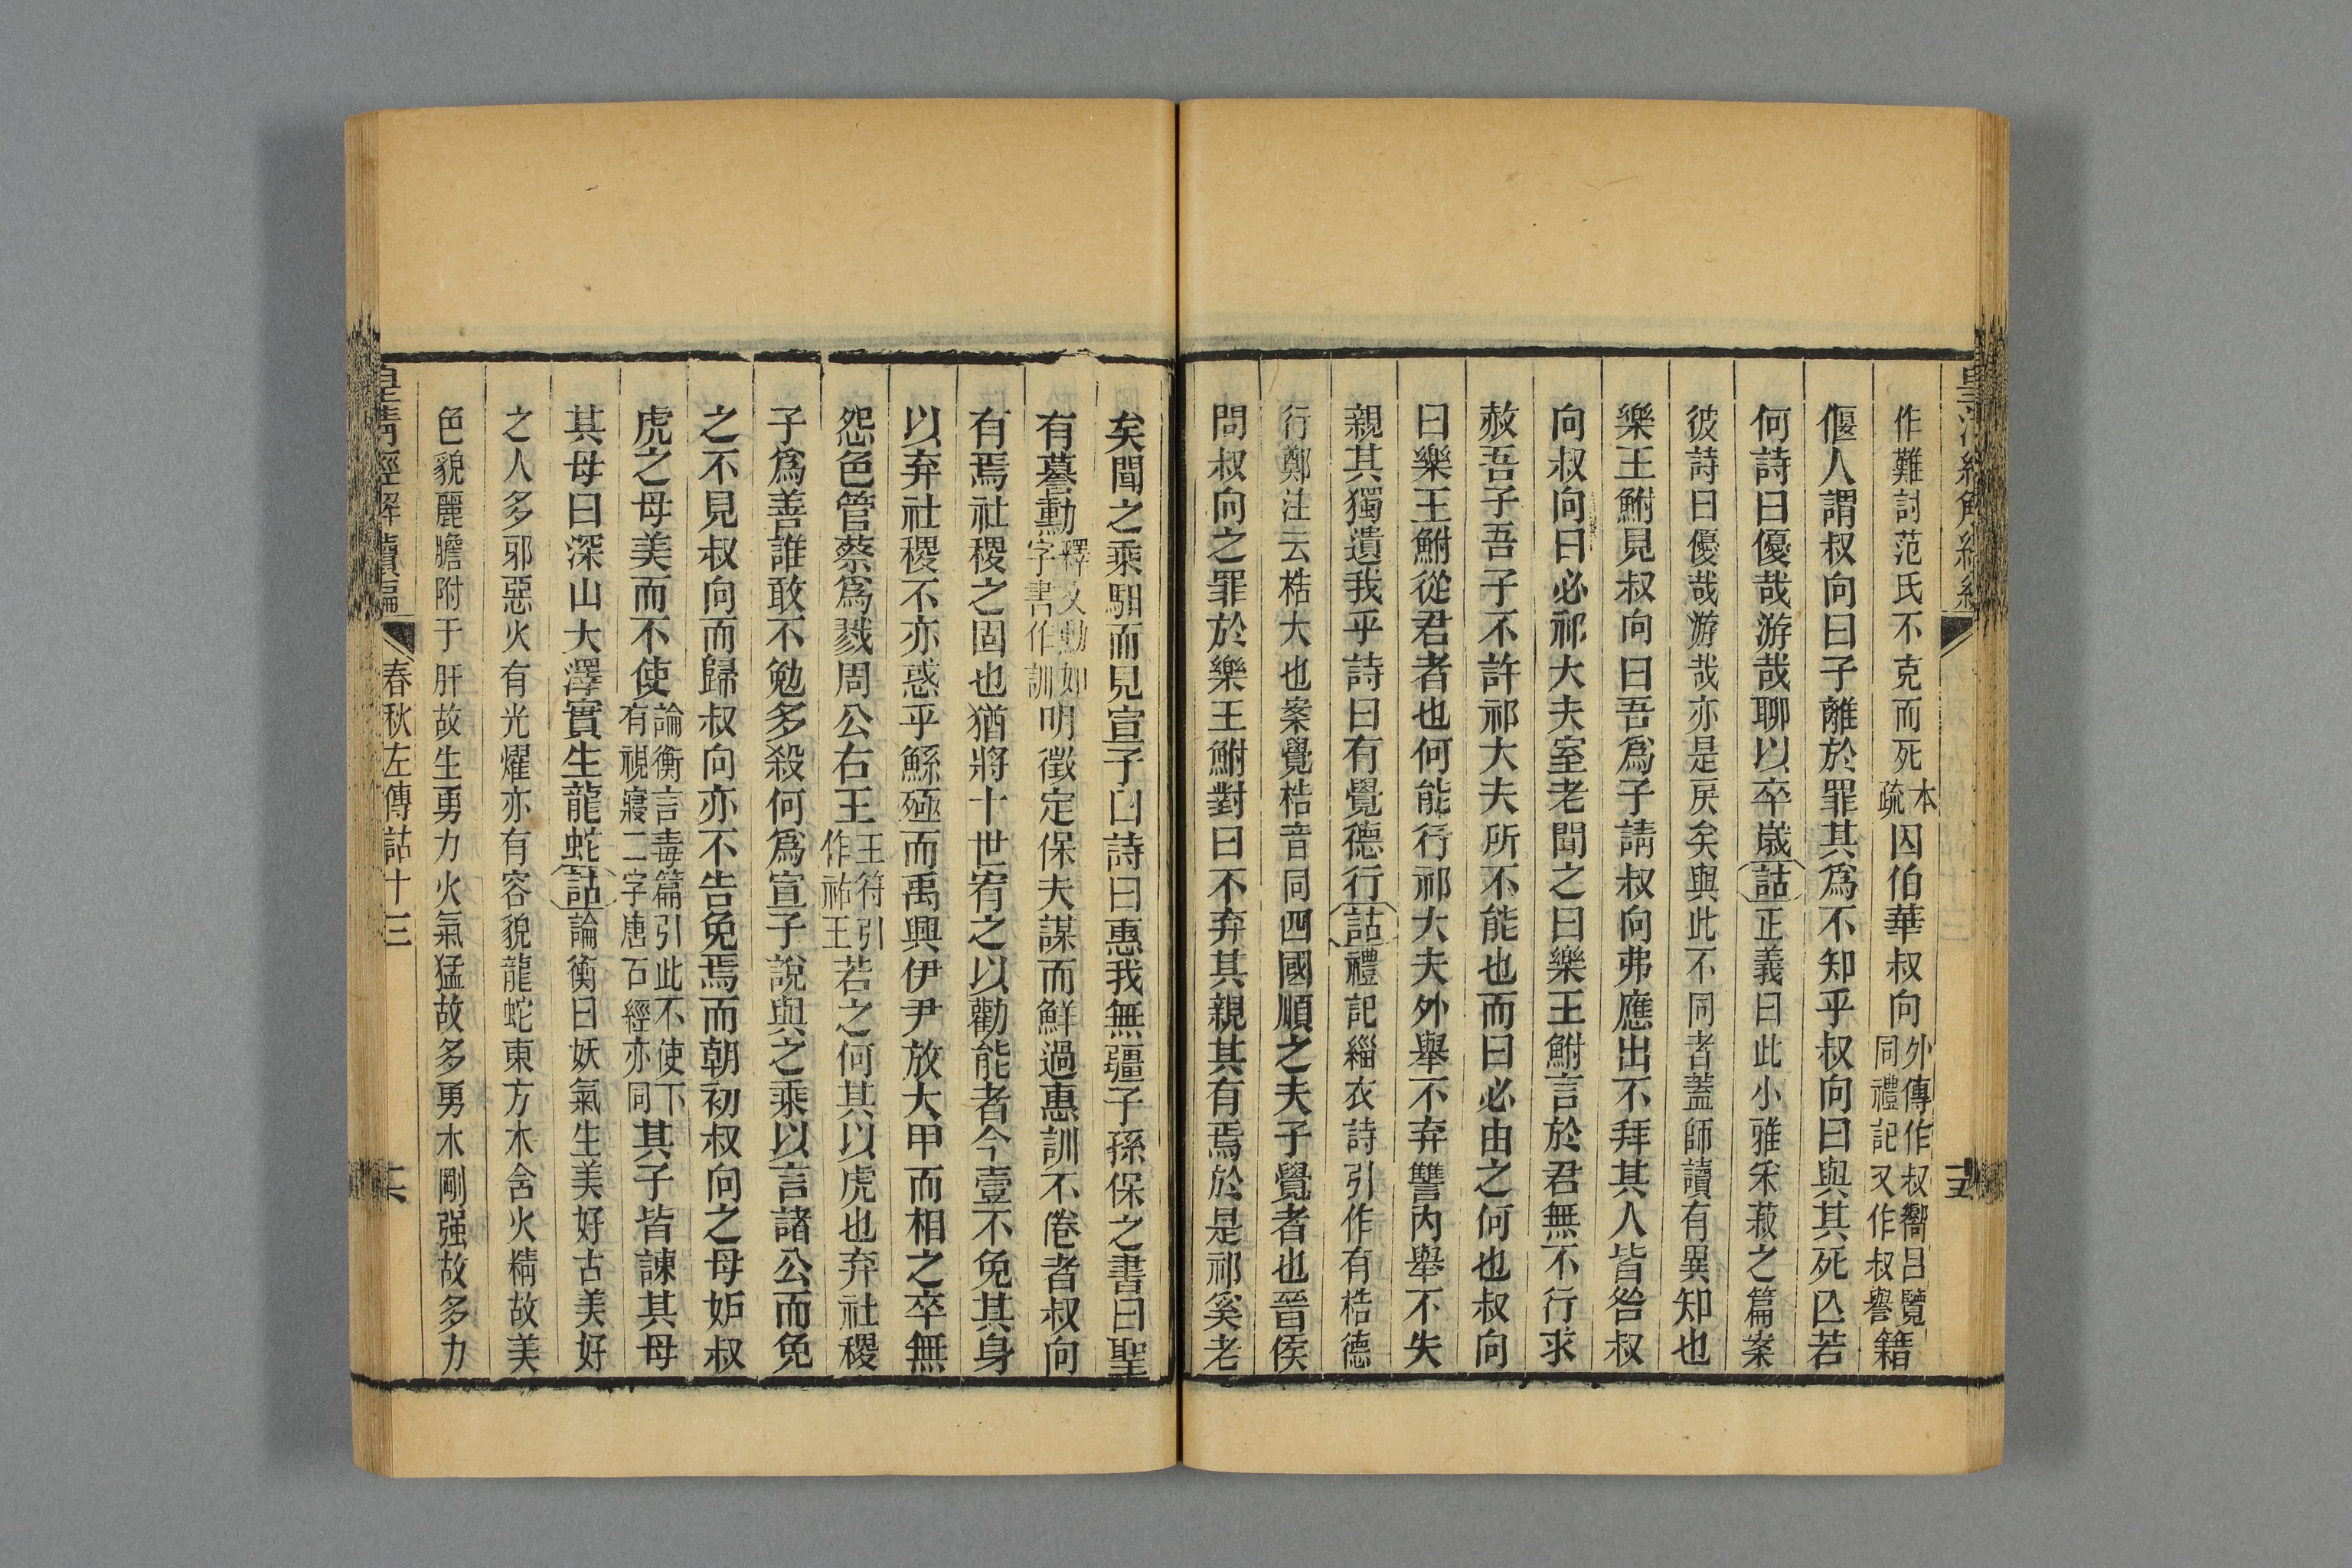 作難討范氏不克而死本疏囚伯華叔向外傳作叔嚮呂覽同禮記又作叔譽籍
偃人謂叔向曰子離於罪其爲不知乎叔向曰與其死亾若
何詩曰優哉游哉聊以卒歲詁正義曰此小雅采菽之篇案
彼詩曰優哉游哉亦是戾矣與此不同者蓋師讀有異知也
樂王鮒見叔向曰吾爲子請叔向弗應出不拜其人皆咎叔
向叔向曰必祁大夫室老聞之曰樂王鮒言於君無不行求
赦吾子吾子不許祁大夫所不能也而曰必由之何也叔向
曰樂王鮒從君者也何能行祁大夫外舉不弃讐內舉不失
親其獨遺我乎詩曰有覺德行詁禮記緇衣詩引作有梏德
行鄭注云梏大也案覺梏音同四國順之夫子覺者也晉侯
問叔向之罪於樂王鮒對曰不弃其親其有焉於是祁奚老
矣聞之乘馹而見宣子曰詩曰惠我無疆子孫保之書曰聖
有謩勳釋文勳如字書作訓明徵定保夫謀而鮮過惠訓不倦者叔向
有焉社稷之固也猶將十世宥之以勸能者今壹不免其身
以弃社稷不亦惑乎鯀殛而禹興伊尹放大甲而相之卒無
怨色管蔡爲戮周公右王王符引作祐王若之何其以虎也弃社稷
子爲善誰敢不勉多殺何爲宣子說與之乘以言諸公而免
之不見叔向而歸叔向亦不告免焉而朝初叔向之母妒叔
虎之母美而不使論衡言毒篇引此不使下有視寢二字唐石經亦同其子皆諫其母
其母曰深山大澤實生龍蛇詁論衡曰妖氣生美好古美好
之人多邪惡火有光燿亦有容貌龍蛇東方木含火精故美
色貌麗膽附于肝故生勇力火氣猛故多勇木剛强故多力
皇清經解續編
春秋左傳詁十三